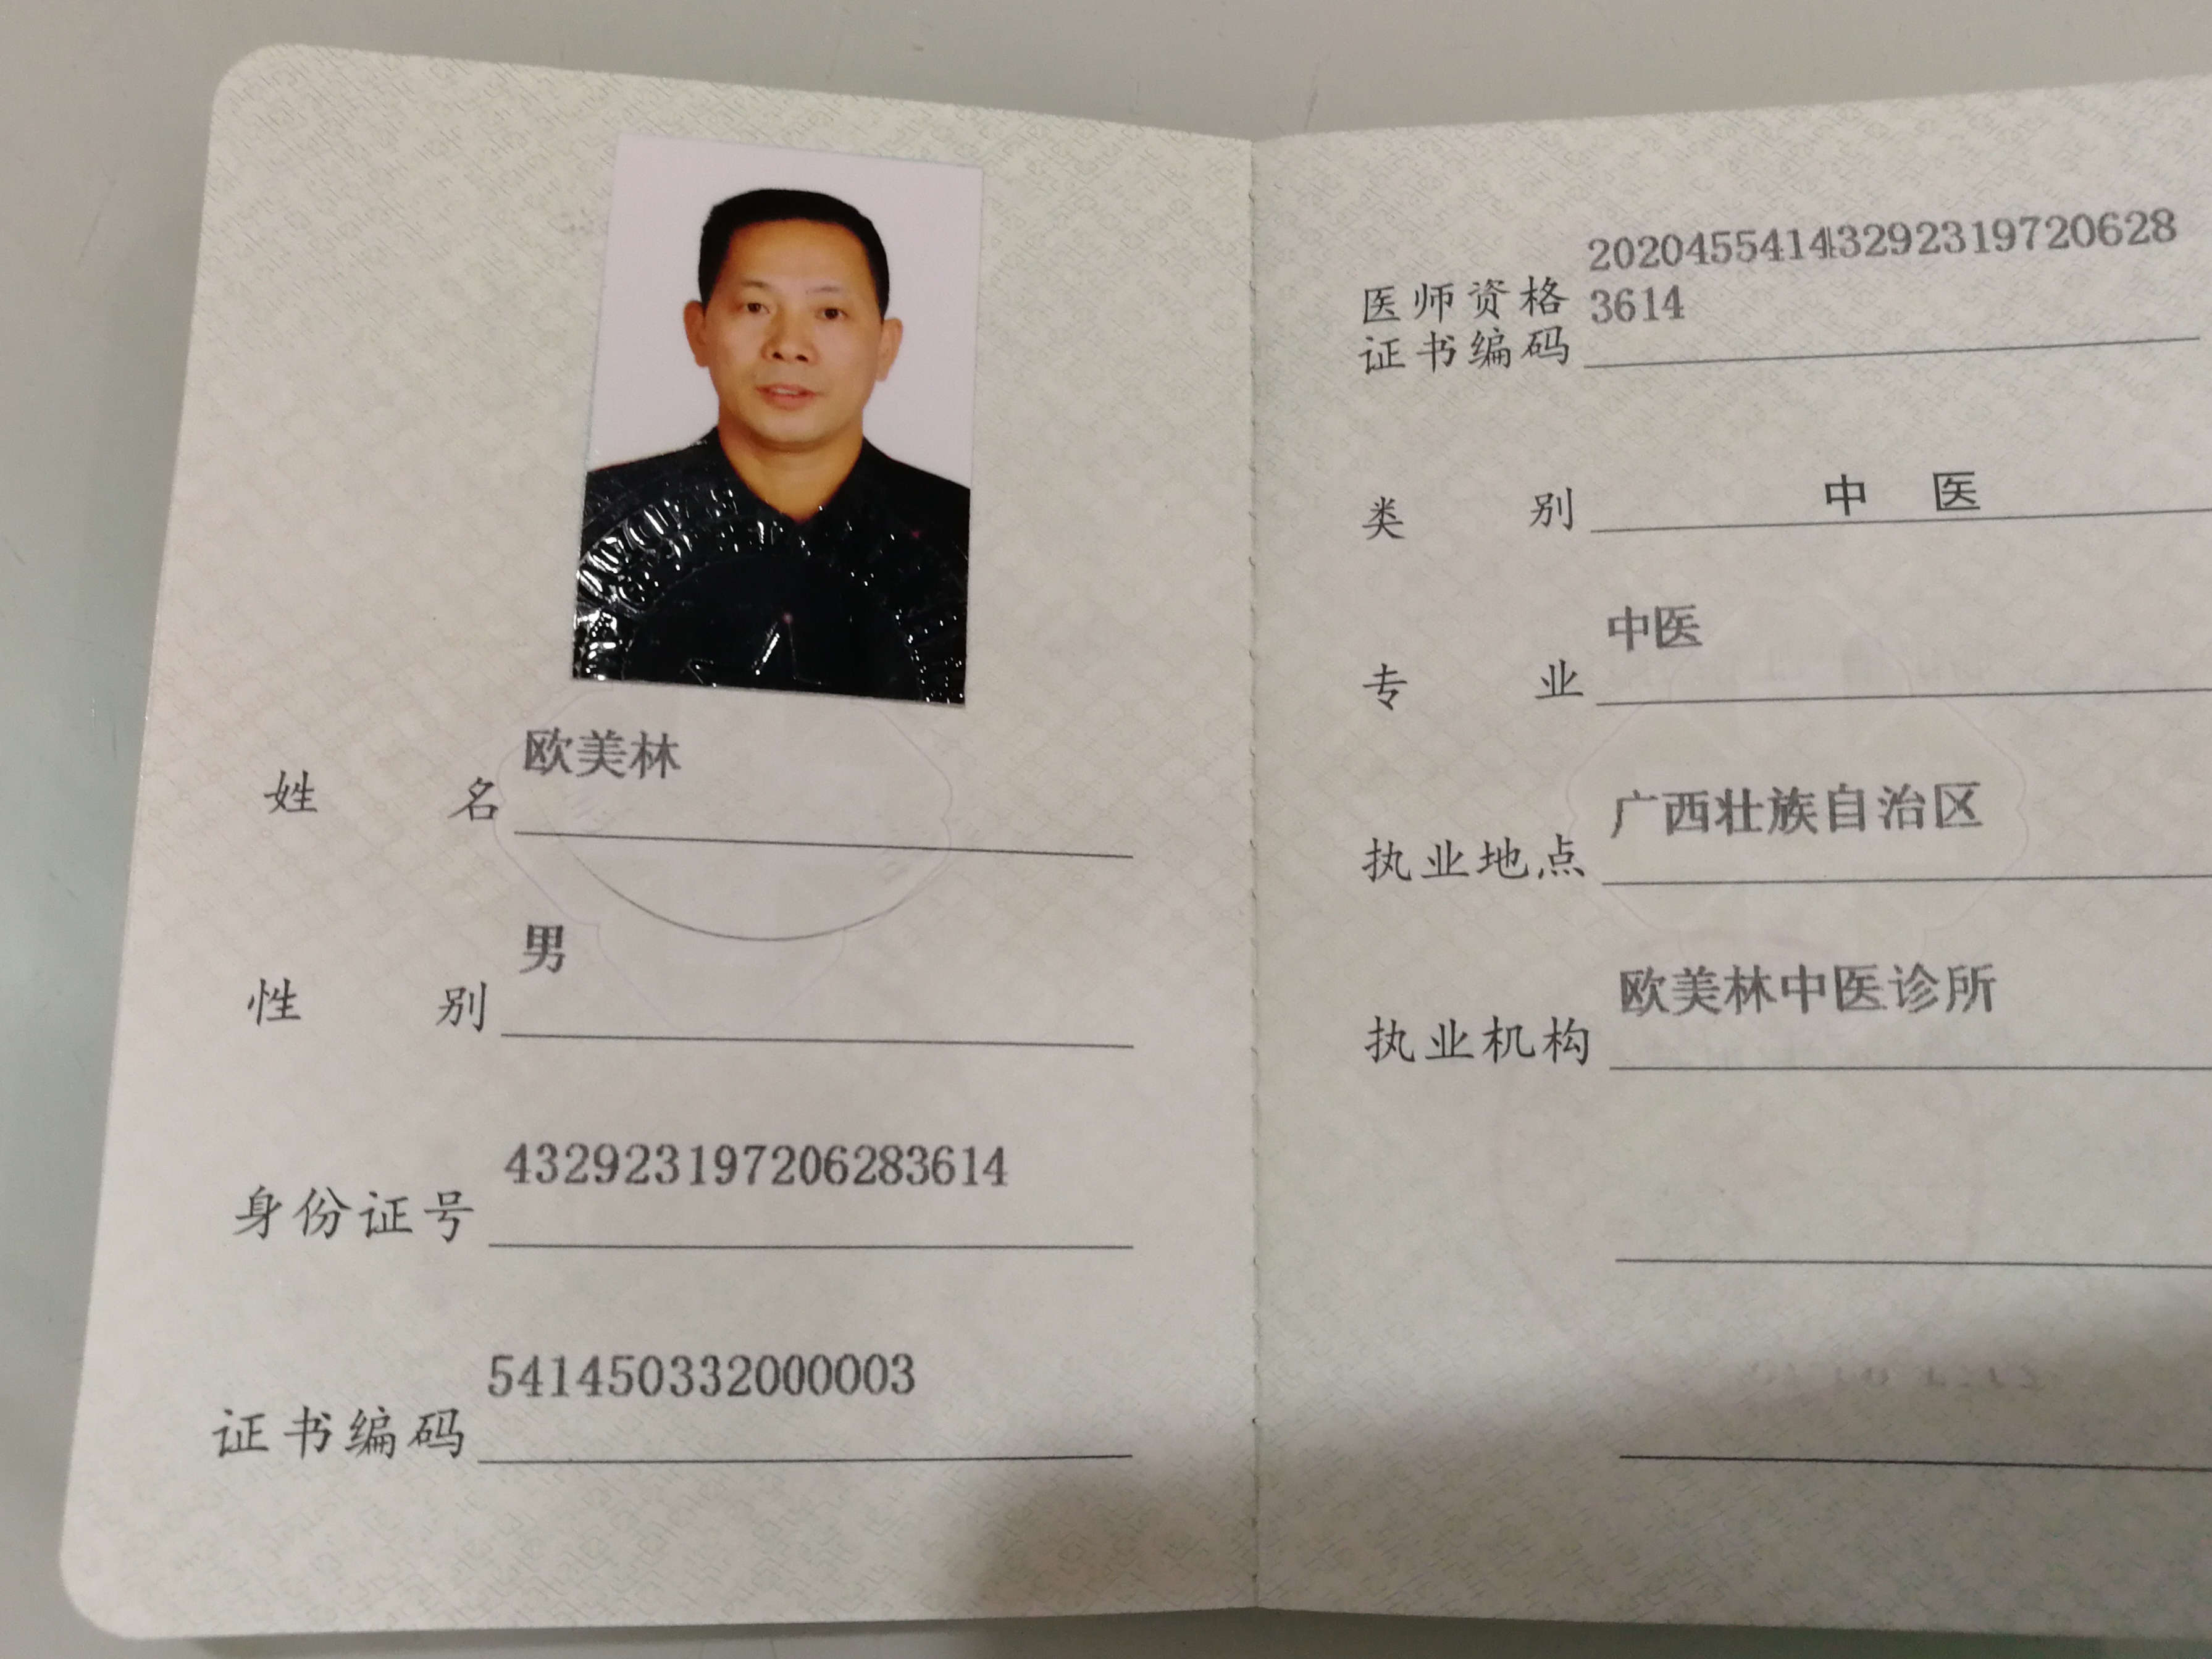 姓名 欧美林
性别 男
身份证号 432923197206283614
证书编码 541450332000003
医师资格 202045541443292319720628
证书编码 3614
类别 中医
专业 中医
执业地点 广西壮族自治区
执业机构 欧美林中医诊所